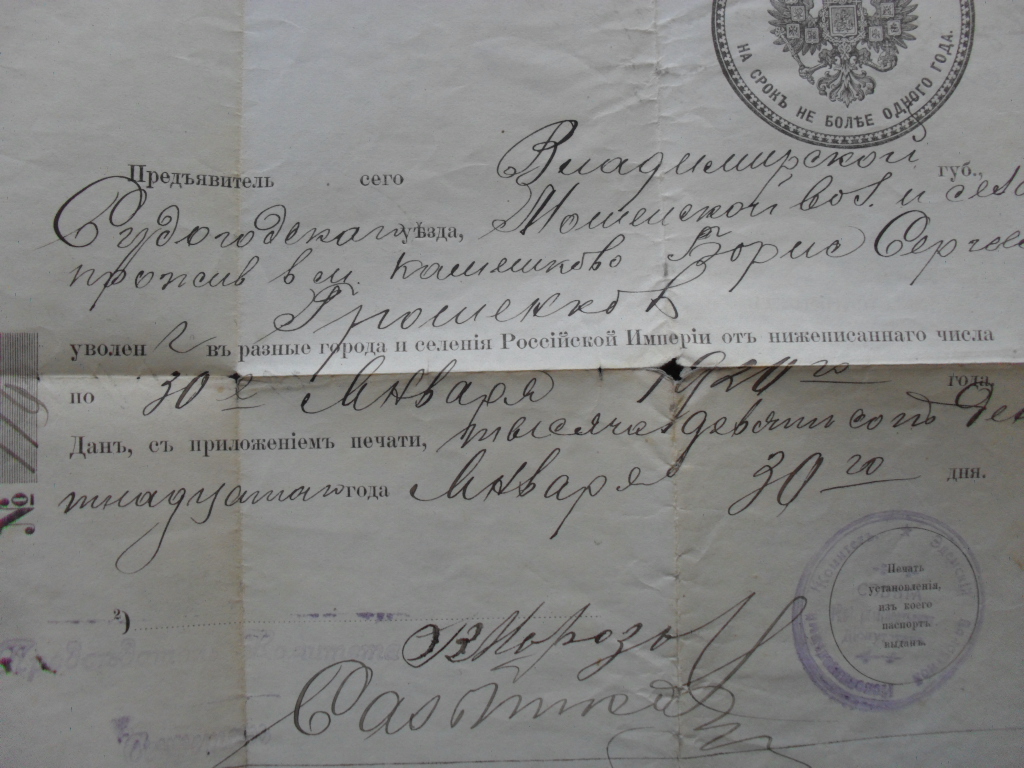 НА СРОКЪ НЕ БОЛѢЕ ОДНОГО ГОДА.
Предъявитель сего Владимирской губ.,
Судогодскаго уѣзда, Мошенской вол. и села
прожив в м. Камешково Борис Сергее
увolen въ разные города и селенія Россійской Имперіи отъ нижеписаннаго числа
по 30е Января 1920го года
Данъ, съ приложеніемъ печати, тысяча девятьсотъ девя
тнадцатаго года Января 30го дня.
№
Печать
установленія,
изъ коего
паспортъ
выданъ.
2)
Предсѣдатель Комитета
Морозов